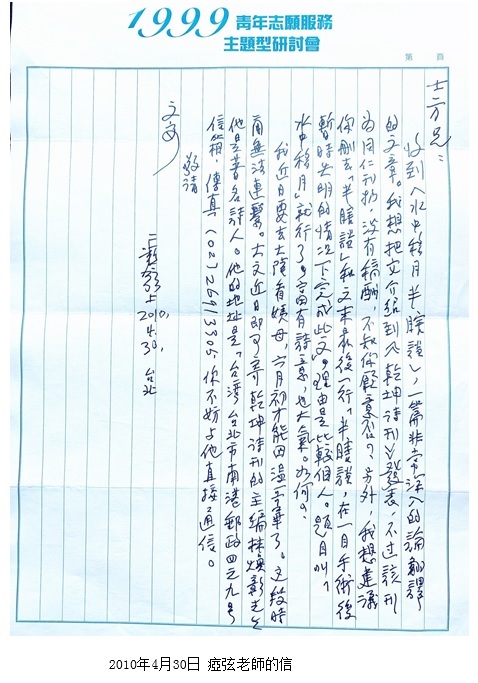 1999 青年志願服務
主題型研討會
第 頁
士方兄：
收到〈水中移月半瞎談〉，一篇非常深入的論翻譯
的文章。我想把文介紹到《乾坤詩刊》發表，不过該刊
为同仁刊物，没有稿酬，不知你願意否？另外，我想建議
你刪去「半瞎談」和文末最後一行「半瞎談，在一目手術後
暫時失明的情況下完成此文」，理由是比較個人。題目叫「
水中移月」就行了，富有詩意，也大氣。如何？
我近日要去大陸看姨母，六月初才能回溫哥華了。这段時
間無法連繫。大文近日即可寄乾坤詩刊的主編林煥彰先生
他是著名詩人。他的地址是「台灣台北市南港郵政四之九号
信箱，傳真(02)26913305 你不妨与他直接通信。
敬請
文安
瘂弦上
2010,
4.30,
台北
2010年4月30日 瘂弦老師的信